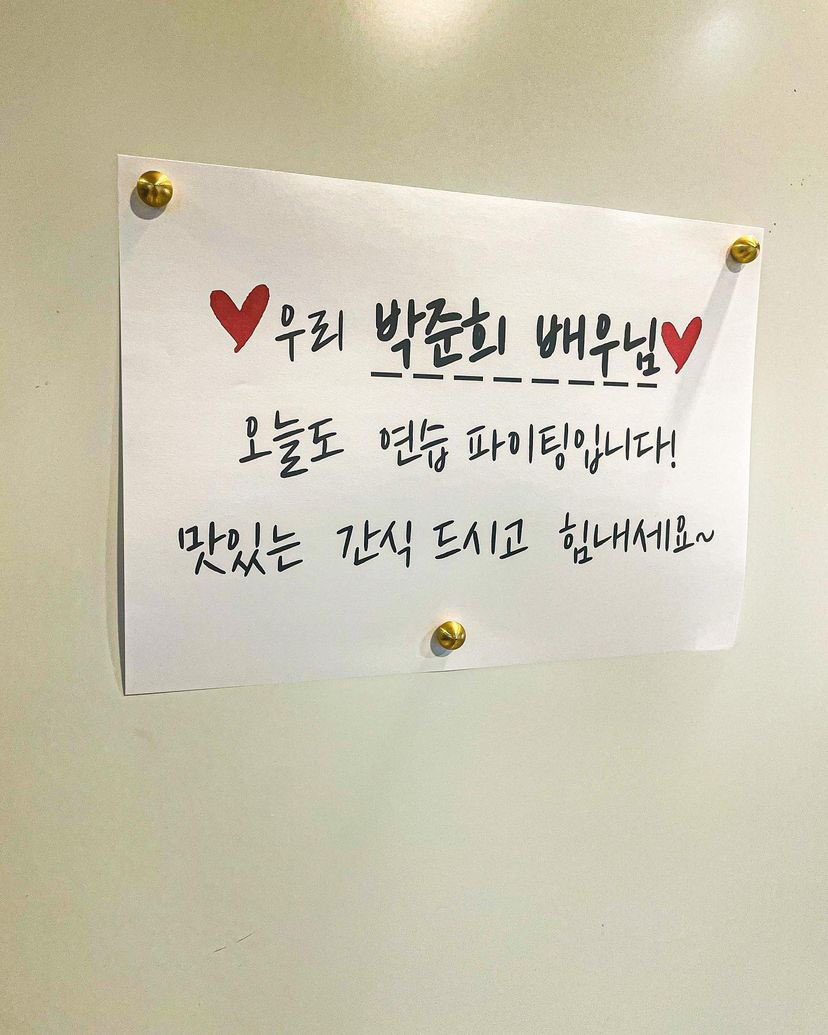 ♥우리 박준희 배우님♥
오늘도 연습 파이팅입니다!
맛있는 간식 드시고 힘내세요~